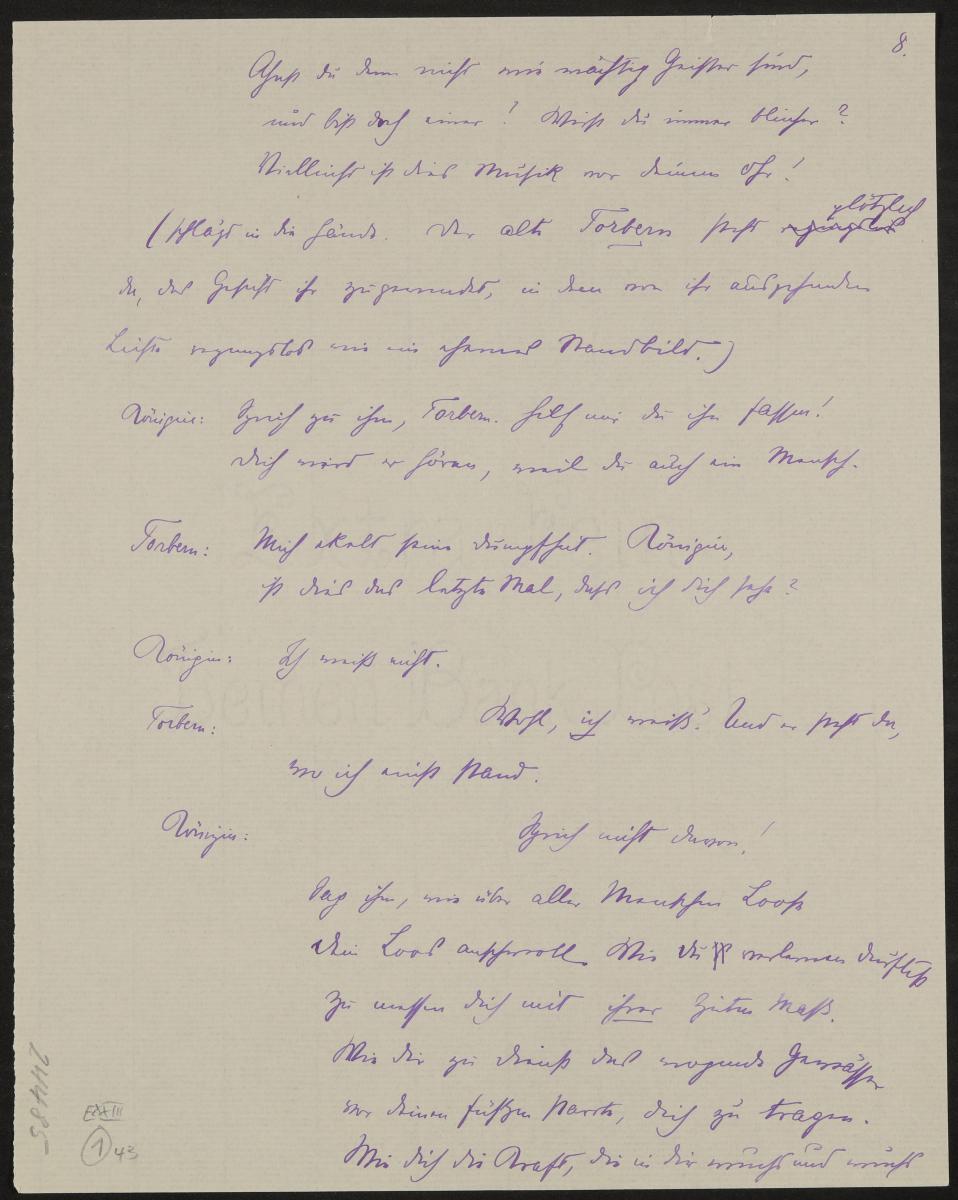 8.
Ahnst du denn nicht wie mächtig Geister sind,
und bist doch einer! Weißt du immer blinder?
Vielleicht ist dies Musik vor deinem Ohr!
(schlägt in die Hände. Der alte Torbern steht plötzlich
da, das Gesicht ihr zugewendet, in dem von ihr ausgehenden
Lichte regungslos wie ein ehernes Standbild.)
Königin: Sprich zu ihm, Torbern. Hilf mir du ihn fassen!
Dich wird er hören, weil du auch ein Mensch.
Torbern: Mich ekelt seine Dumpfheit. Königin,
ist dies das letzte Mal, dass ich dich sehe?
Königin: Ich weiß nicht.
Torbern: Wohl, ich weiß! Und er steht da,
wo ich einst stand.
Königin: Sprich nicht davon!
Sag ihm, wie über aller Menschen Loos
dein Loos anschwoll. Wie du verlernen durftest
zu messen dich mit ihrer Zeiten Maß.
Wie dir zu Dienst das wogende Gewässer
vor deinen Füßen starrte, dich zu tragen.
Wie dich die Kraft, die in dir wuchs und wuchs
24485
E XXIII
1 43